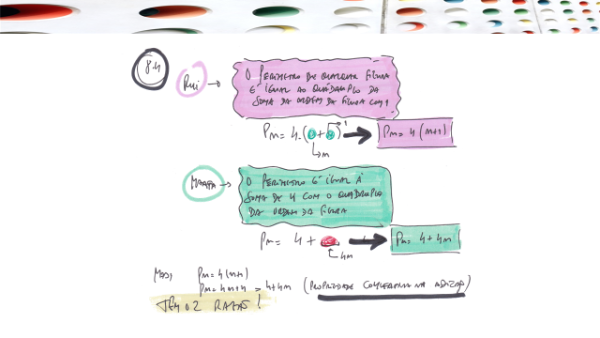 84
Rui
O PERÍMETRO DE QUALQUER FIGURA
É IGUAL AO QUÁDRUPLO DA
SOMA DA ORDEM DA FIGURA COM 1
Pm = 4.( + ) 1
m
Pm = 4(m+1)
MARTA
O PERÍMETRO É IGUAL À
SOMA DE 4 COM O QUÁDRUPLO
DA ORDEM DA FIGURA
Pm = 4 +
4m
Pm = 4 + 4m
MAS, Pm = 4(m+1)
Pm = 4m+4 = 4+4m (PROPRIEDADE COMUTATIVA NA ADIÇÃO)